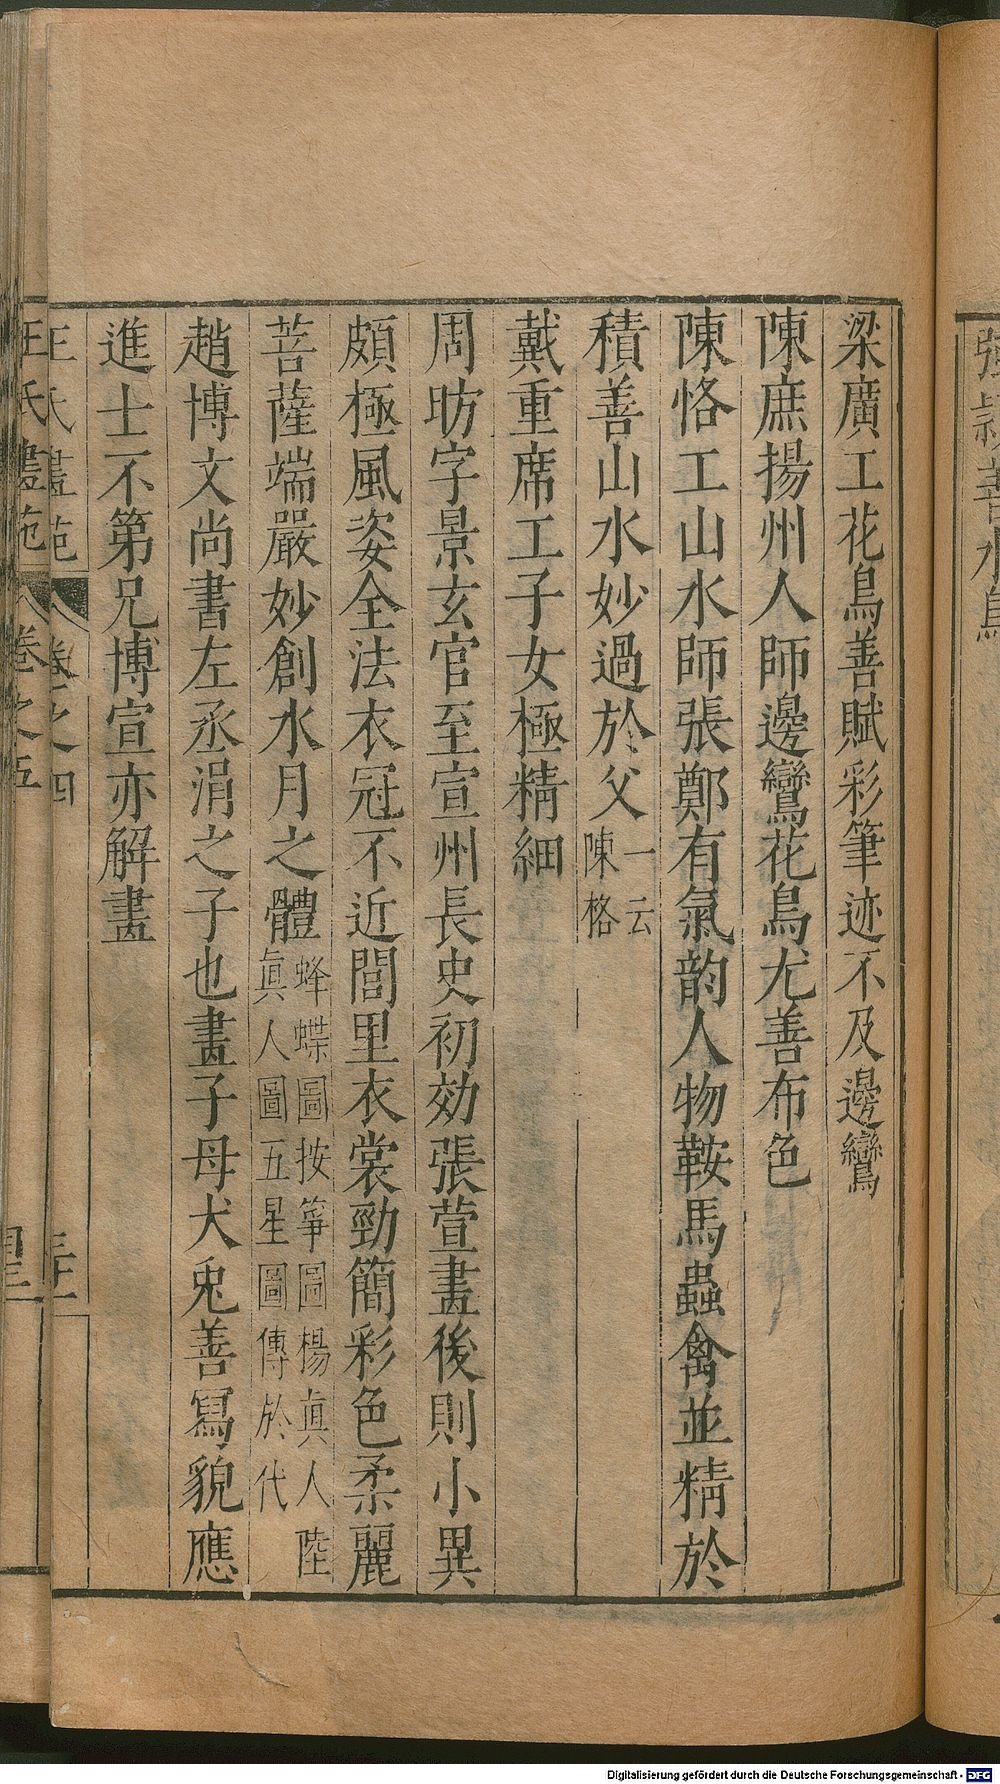 梁廣工花鳥善賦彩筆迹不及邊鸞
陳庶揚州人師邊鸞花鳥尤善布色
陳恪工山水師張鄭有氣韵人物鞍馬蟲禽並精於
積善山水妙過於父一云陳格
戴重席工子女極精細
周昉字景玄官至宣州長史初効張萱畫後則小異
頗極風姿全法衣冠不近閭里衣裳勁簡彩色柔麗
菩薩端嚴妙創水月之體蜂蝶圖按箏圖楊眞人陸眞人圖五星圖傳於代
趙博文尚書左丞涓之子也畫子母犬兎善寫貌應
進士不第兄博宣亦解畫
王氏畫苑 卷之四
王氏畫苑 卷之五
善水鳥
Digitalisierung gefördert durch die Deutsche Forschungsgemeinschaft - DFG